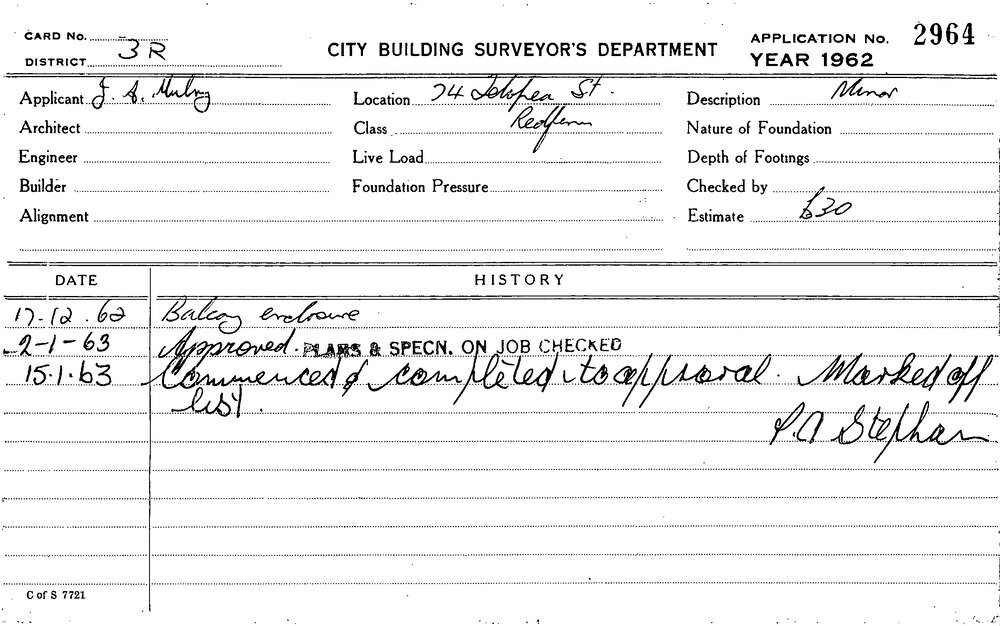 CARD No.
DISTRICT 3R
CITY BUILDING SURVEYOR'S DEPARTMENT
APPLICATION No. 2964
YEAR 1962
Applicant J. A.
Location 74 Telopea St.
Description Minor
Architect
Class Redfern
Nature of Foundation
Engineer
Live Load
Depth of Footings
Builder
Foundation Pressure
Checked by
Alignment
Estimate £30
DATE HISTORY
17-12.62 Balcony enclosure
2-1-63 Approved. PLANS & SPECN. ON JOB CHECKED
15.1.63 Commenced & completed to approval. Marked off
list.
P.A Stephan
C of S 7721